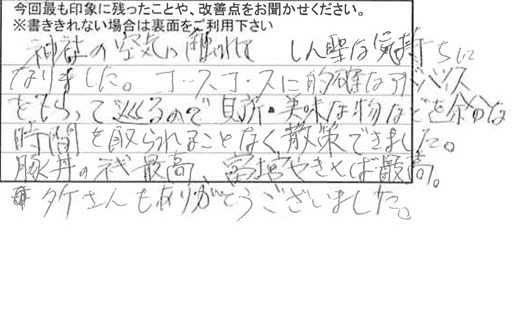 今回最も印象に残ったことや、改善点をお聞かせください。
※書ききれない場合は裏面をご利用下さい
神社の空気に触れて しん聖な気持ちに
なりました。コースコースに的確なアドバイス
をもらって巡るので見所・美味な物などを余分な
時間を取られることなく散策できました。
豚丼のネギ最高、富増やきそば最高。
タケさんもありがとうございました。